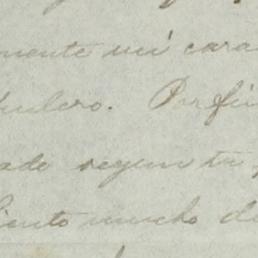 mente mi cara
pulcro. Por fin
ade segun tu
iento mucho de